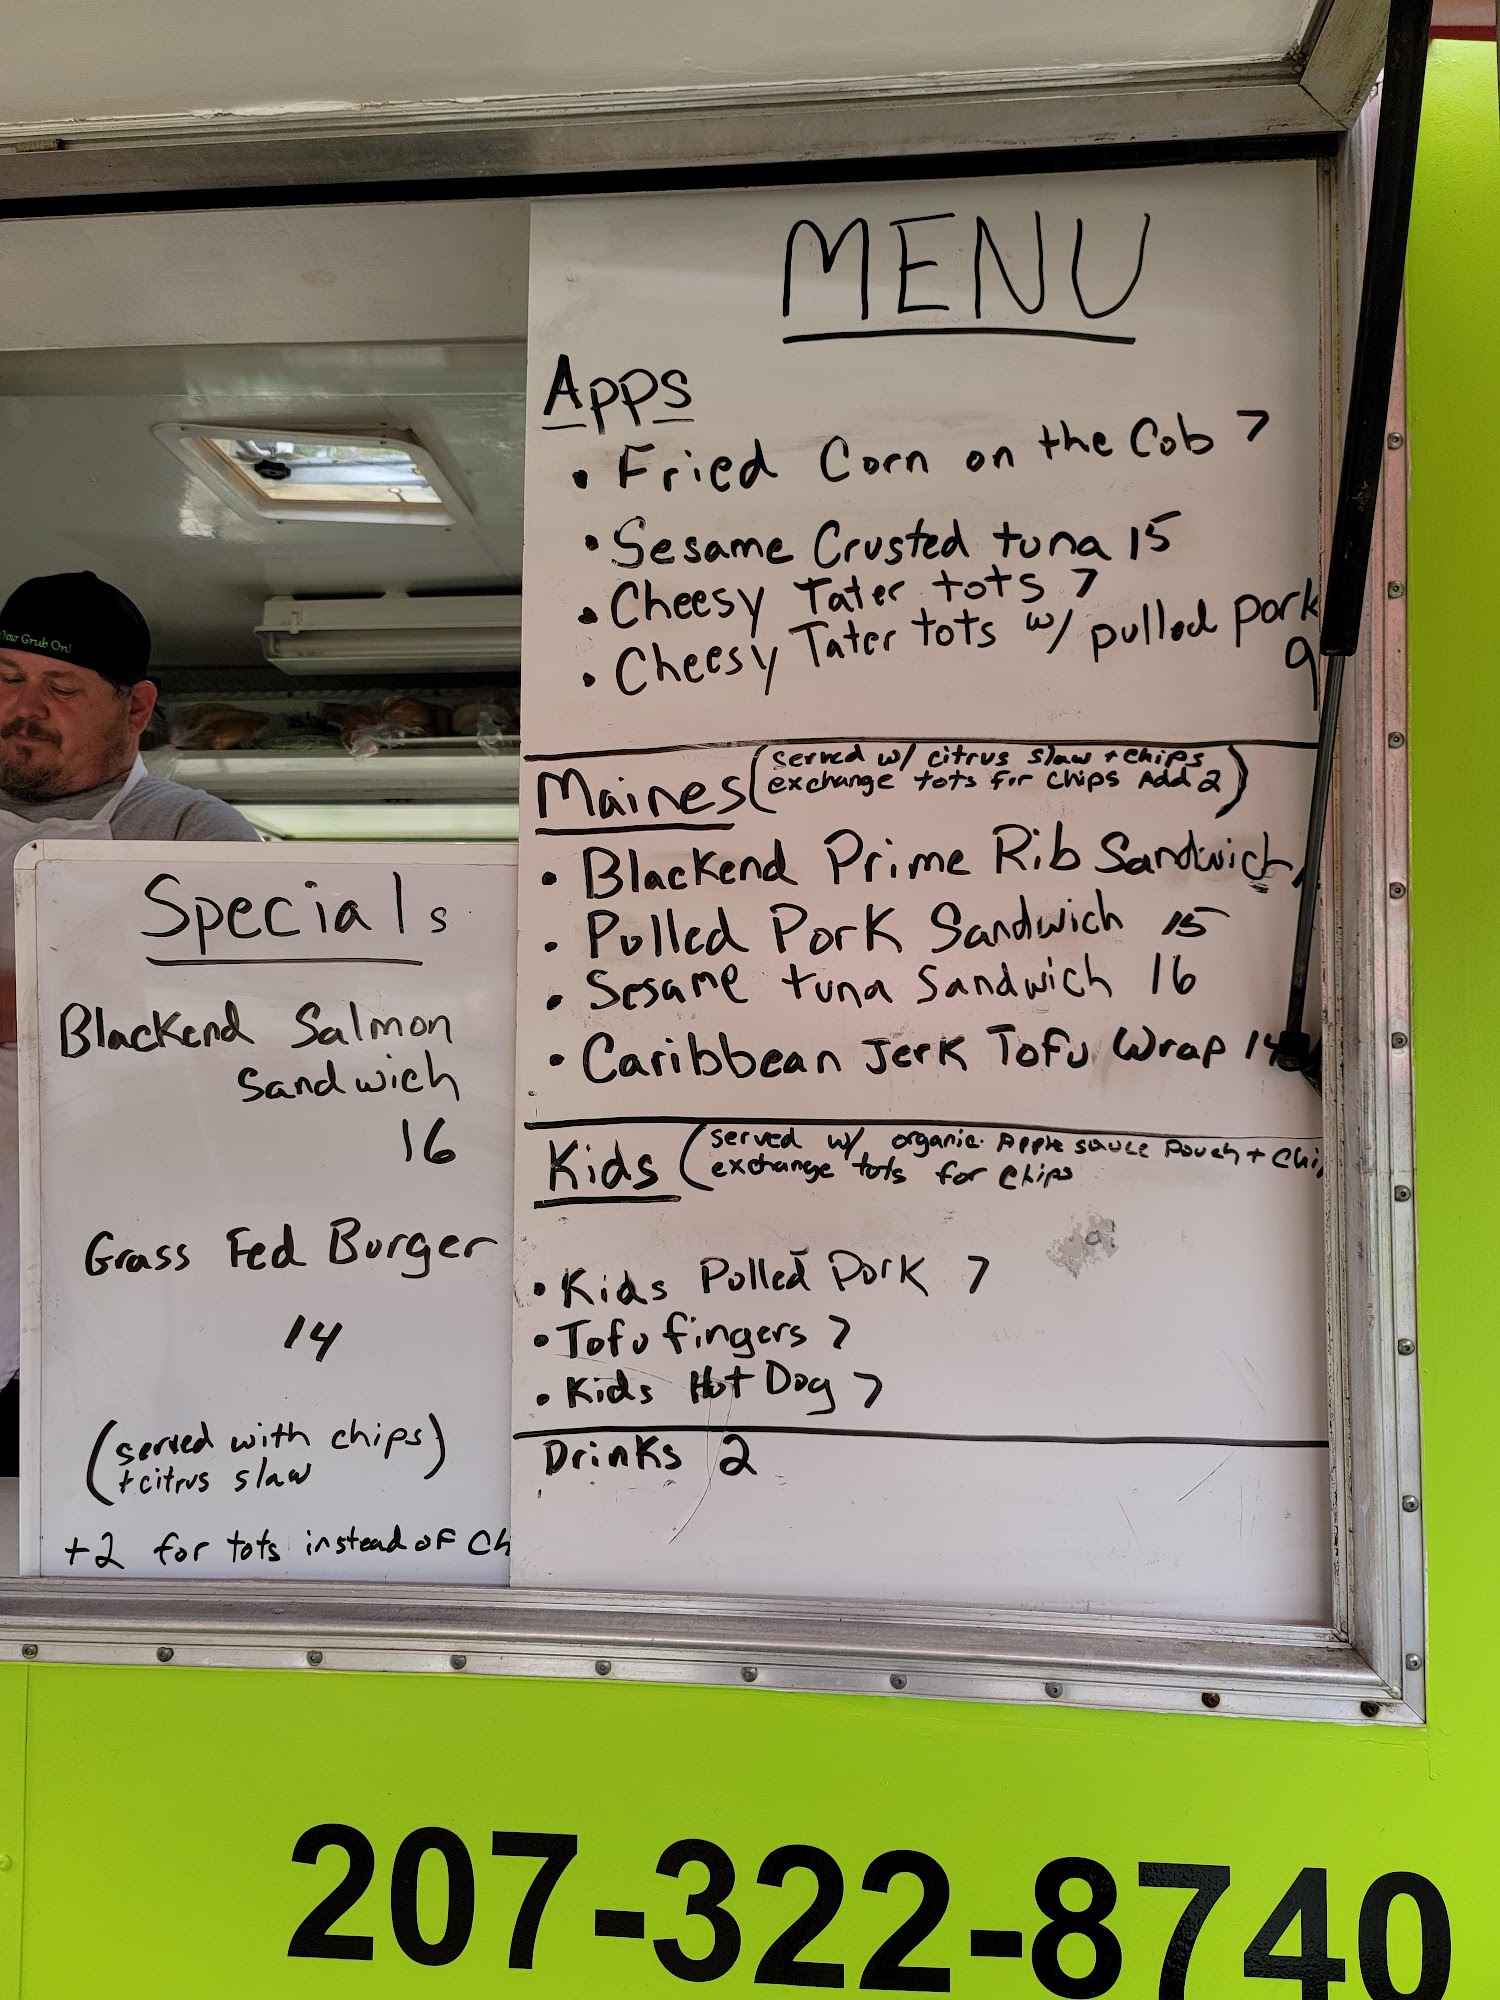 MENU
Apps
• Fried Corn on the Cob 7
• Sesame Crusted tuna 15
• Cheesy Tater tots 7
• Cheesy Tater tots w/ pulled pork
9
Maines (served w/ citrus slaw + chips
exchange tots for chips Add 2)
• Blackend Prime Rib Sandwich
• Pulled Pork Sandwich 15
• Sesame tuna Sandwich 16
• Caribbean Jerk Tofu Wrap 14
Kids (served w/ organic Apple sauce Pouch + Chi
exchange tots for chips
• Kids Pulled Pork 7
• Tofu fingers 7
• Kids Hot Dog 7
Drinks 2
Specials
Blackend Salmon
Sandwich
16
Grass Fed Burger
14
(served with chips)
+ citrus slaw
+2 for tots instead of Ch
Grub On!
207-322-8740